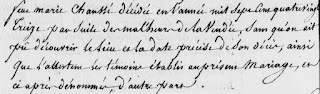 feue marie Chauffé décédée en l'année mil Sept Cent quatre vingt
Treize par Suite des malheurs de la Vendée, Sans qu'on ait
pû découvrir le lieu et la date précise de Son décès, ainsi
que l'attestent les témoins établis au présent Mariage, et
ci après dénommés d'autre part.